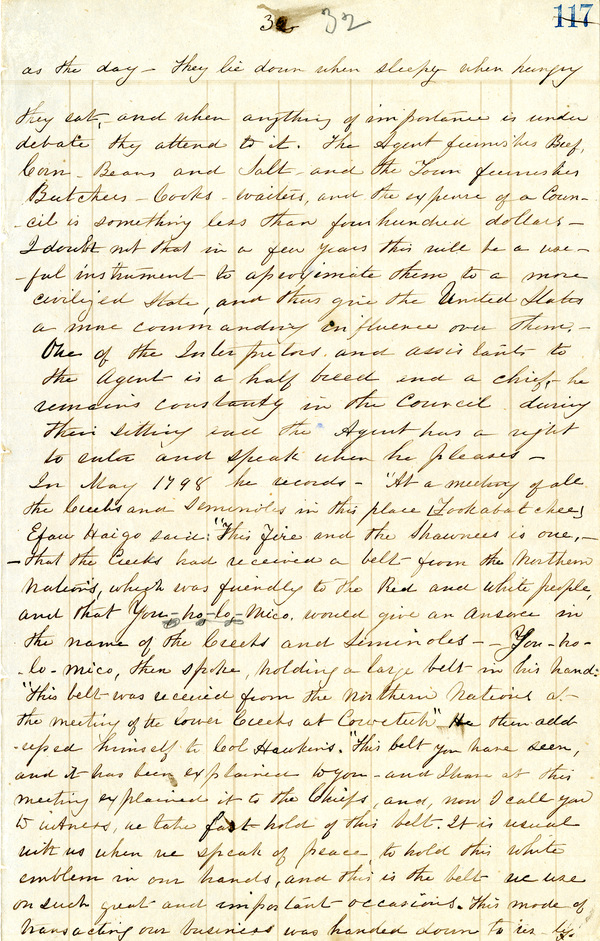 32 32 117
as the day – They lie down when sleepy when hungry
they eat, and when anything of importance is under
debate they attend to it. The Agent furnishes Beef,
Corn – Beans and Salt – and the Town furnishes
Butchers – Cooks – waiters, and the expense of a Coun-
-cil is something less than four hundred dollars –
I doubt not that in a few years this will be a use-
-ful instrument to aproximate them to a more
civilized State, and thus give the United States
a more commanding influence over them. –
One of the Interpretors and assistants to
the Agent is a half breed and a chief, he
remains constantly in the Council during
their sitting and the Agent has a right
to enter and speak when he pleases –
In May 1798 he records – "At a meeting of all
the Creeks and Seminoles in this place (Tookabatchee)
Efau Haigo said: "This Fire and the Shawnees is one, –
– that the Creeks had received a belt from the Northern
Nations, which was friendly to the Red and white people,
and that You-ho-lo-Mico. would give an answer in
the name of the Creeks and Seminoles – – You-ho-
-lo-mico, then spoke, holding a large belt in his hand:
"This belt was received from the Northern Nations at
the meeting of the Lower Creeks at Cowetuh" He then add-
-ressed himself to Col Hawkins. "This belt you have seen,
and it has been explained to you – and I have at this
meeting explained it to the Chiefs, and, now I call you
to witness, we take fast hold of this belt. It is usual
with us when we speak of peace, to hold this white
emblem in our hands, and this is the belt we use
on such great and important occasions. This mode of
transacting our business was handed down to us by